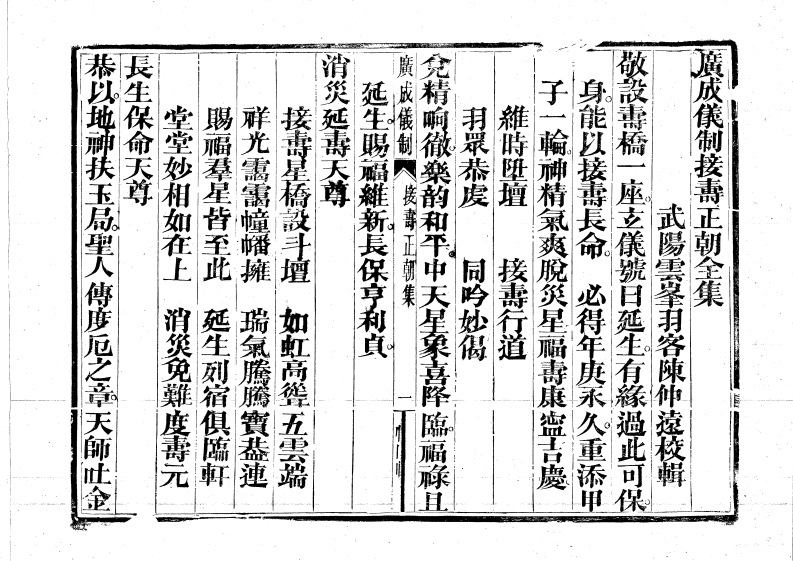 廣成儀制接壽正朝全集
武陽雲峯羽客陳仲遠校輯
敬設壽橋一座。玄儀號曰延生。有緣過此可保。
身。能以接壽長命。必得年庚永久。重添甲
子一輪。神精氣爽脫災星。福壽康寧吉慶
維時堕壇　接壽行道
羽眾恭虔　同吟妙偈
兌精响徹。樂韵和平。中天星象喜降臨。福祿且
廣成儀制　接壽正朝集　一
延生。賜福維新。長保亨利貞。
消災延壽天尊
接壽星橋設斗壇　如虹高聳五雲端
祥光靄靄幢幡擁　瑞氣騰騰寶葢連
賜福羣星皆至此　延生列宿俱臨軒
堂堂妙相如在上　消災免難度壽元
長生保命天尊
恭以。地神扶玉局。聖人傳度厄之章。天師吐金